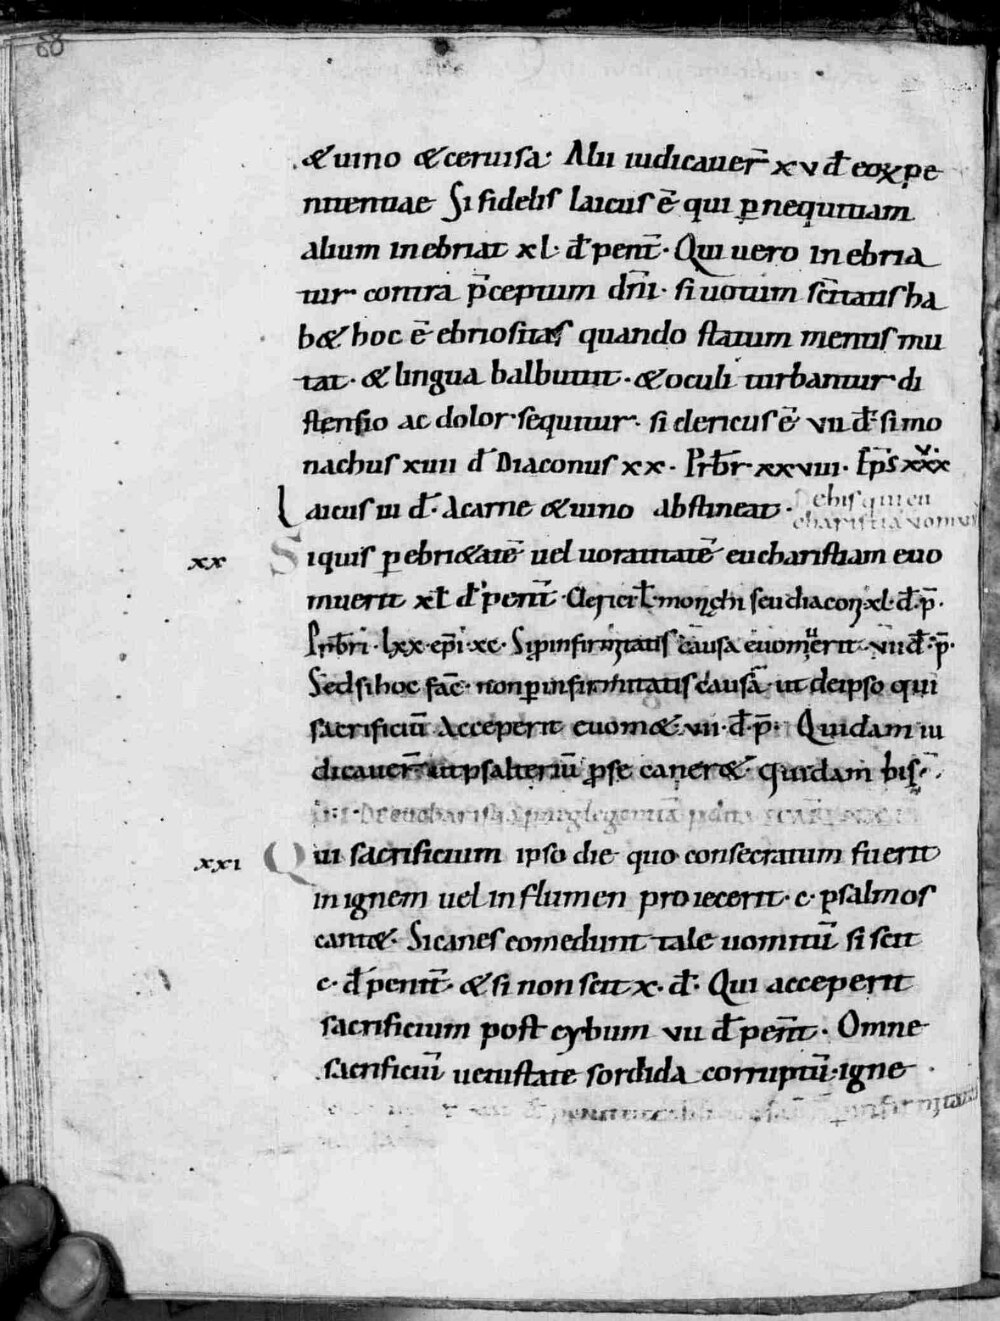 & uino & ceruisa· Alii iudicauer̄ xv đ eoꝝ pe
nitentiae Si fidelis laicus ē qui ꝑ nequitiam
alium inebriat xl· đ penit̄· Qui uero inebria
tur contra p̄ceptum dn̄i· si uotum sc̄itatis ha
b& hoc ē ebriositas quando statum mentis mu
tat· & lingua balbutit· & oculi turbantur di
stensio ac dolor sequitur· si clericus ē vii đ· si mo
nachus xiiii đ Diaconus xx· Prb̄r xxviii· Ep̄s xxx
Laicus iii đ· A carne & uino abstineat· De his qui eu
charistia uomu
xx Siquis ꝑ ebri&atē uel uoratitatē eucharistiam euo
muerit xl đ penit̄· Monachi seu diacon· xl· đ· p̄·
Prb̄ri· lxx· ep̄i· xc· Si ꝑ infirmitatis causa euomuerit· vii đ· p̄·
Sed si hoc fac̄· non ꝑ infirmitatis causā· ut de ipso qui
sacrificiū acceperit euom& vii· đ· p̄· Quidam iu
dicauer̄ ut psalteriū p̱ se caner&· quidam bis·
xxi Qui sacrificium ipso die quo consecratum fuerit
in ignem uel in flumen proiecerit· c· psalmos
cant&· Si canes comedunt tale uomitū si scit
c· đ penit̄· & si non scit x· đ· Qui acceperit
sacrificium post cybum vii đ penit̄· Omne
sacrificiū uetustate sordida corruptū· igne